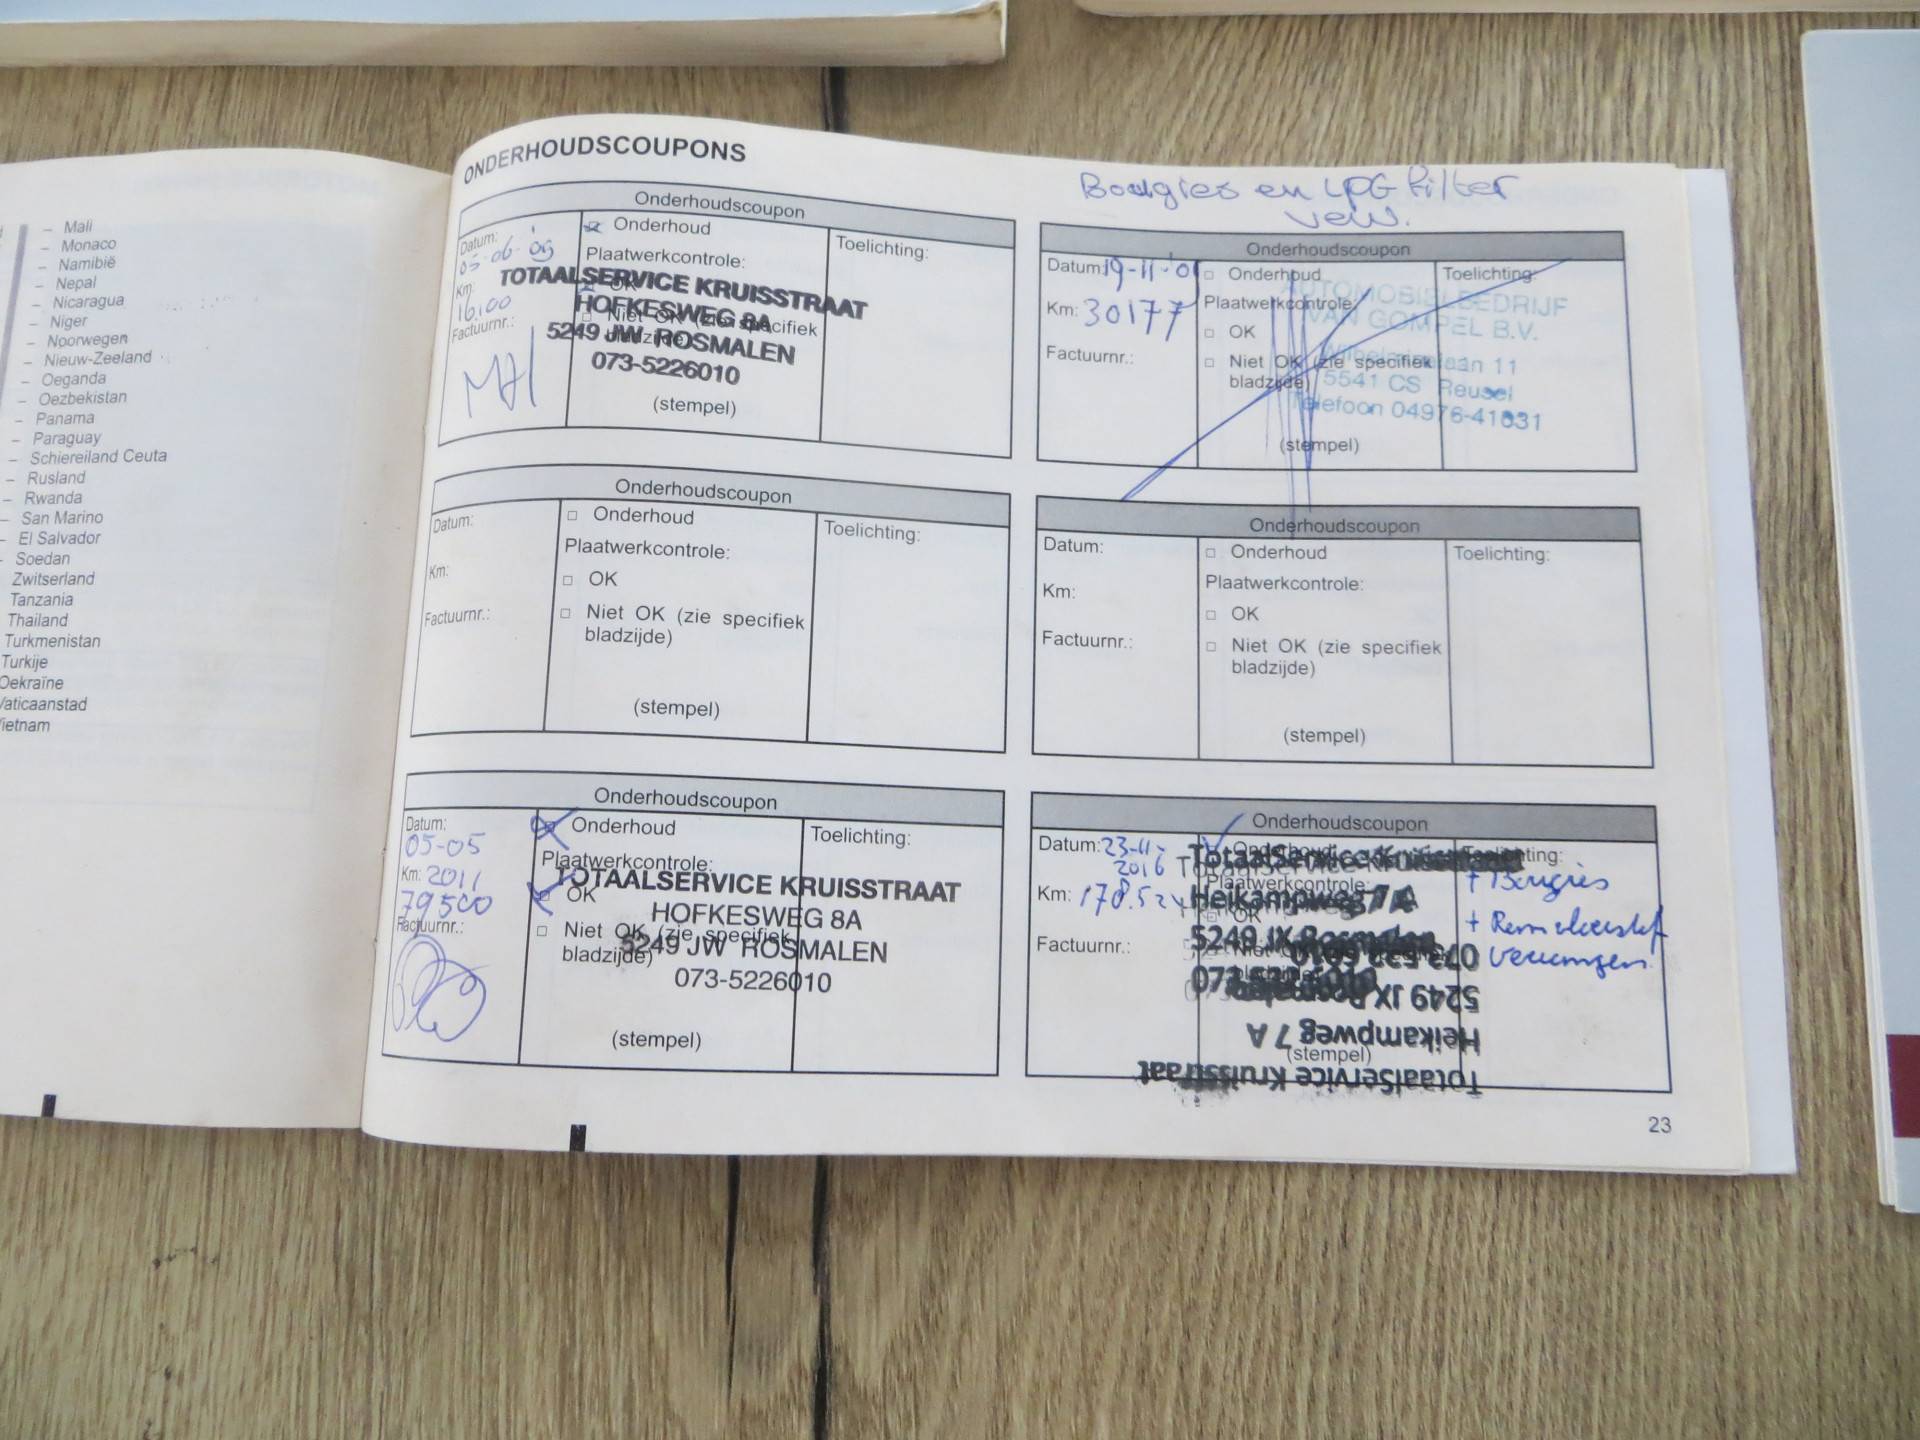 Mali
Monaco
Namibië
Nepal
Nicaragua
Niger
Noorwegen
Nieuw-Zeeland
Oeganda
Oezbekistan
Panama
Paraguay
Schiereiland Ceuta
Rusland
Rwanda
San Marino
El Salvador
Soedan
Zwitserland
Tanzania
Thailand
Turkmenistan
Turkije
Oekraïne
Vaticaanstad
ONDERHOUDSCOUPONS
Onderhoudscoupon
Datum: 05-06-'09
Km: 16100
Factuurnr.:
Onderhoud
Plaatwerkcontrole:
OK
Niet OK (zie specifiek
bladzijde)
(stempel)
Toelichting:
TOTAALSERVICE KRUISSTRAAT
HOFKESWEG 8A
5249 JW ROSMALEN
073-5226010
Bougies en LPG filter
verv.
Onderhoudscoupon
Datum: 19-11-
Km: 30177
Factuurnr.:
Onderhoud
Plaatwerkcontrole:
OK
Niet OK (zie specifiek
bladzijde)
(stempel)
Toelichting:
AUTOMOBIELBEDRIJF
VAN GOMPEL B.V.
11
5541 CS Reusel
Telefoon 04976-41831
Onderhoudscoupon
Datum:
Km:
Factuurnr.:
Onderhoud
Plaatwerkcontrole:
OK
Niet OK (zie specifiek
bladzijde)
(stempel)
Toelichting:
Onderhoudscoupon
Datum:
Km:
Factuurnr.:
Onderhoud
Plaatwerkcontrole:
OK
Niet OK (zie specifiek
bladzijde)
(stempel)
Toelichting:
Onderhoudscoupon
Datum:
05-05
Km: 2011
79500
Factuurnr.:
Onderhoud
Plaatwerkcontrole:
OK
Niet OK (zie specifiek
bladzijde)
(stempel)
Toelichting:
TOTAALSERVICE KRUISSTRAAT
HOFKESWEG 8A
5249 JW ROSMALEN
073-5226010
Onderhoudscoupon
Datum: 23-11-
2016
Km: 178.52
Factuurnr.:
Onderhoud
Plaatwerkcontrole:
OK
(stempel)
Toelichting:
+ Bougies
+ Remvloeistof
vervangen
TotaalService Kruisstraat
Heikampweg 7 A
5249 JX Rosmalen
073 522 6010
5249 JX Rosmalen
Heikampweg 7 A
TotaalService Kruisstraat
23